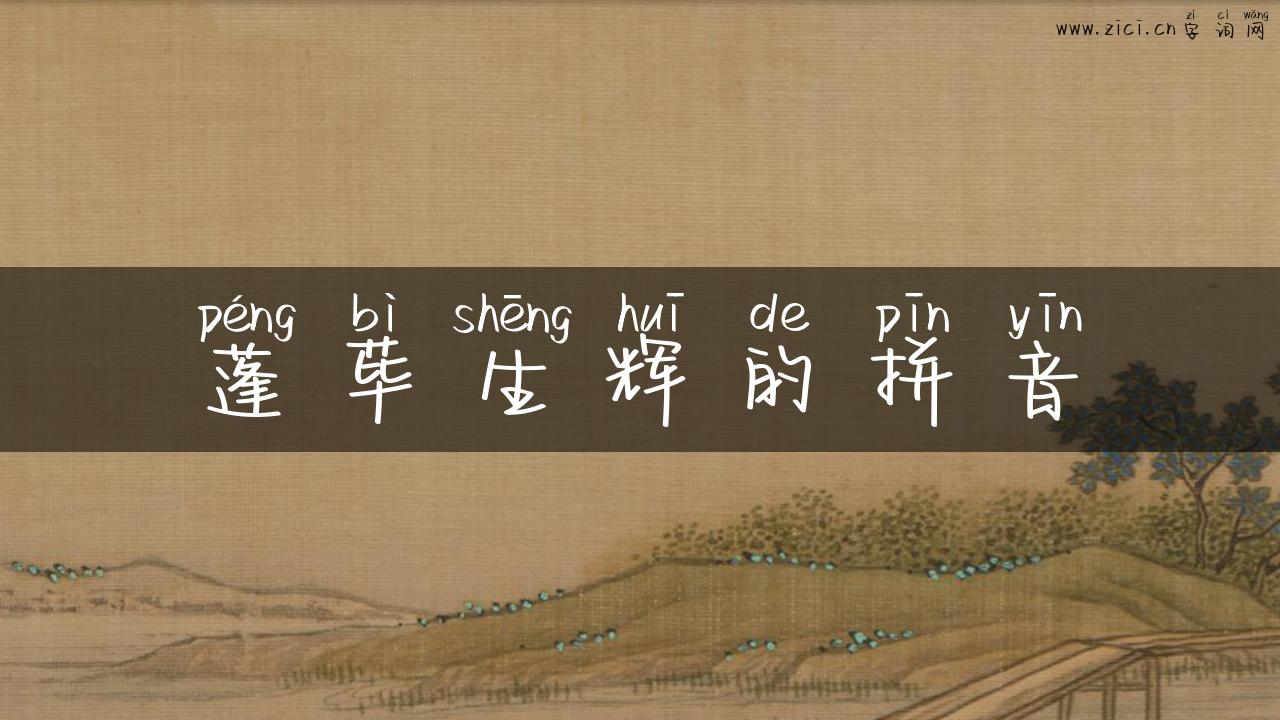 zì cí wǎng
www.zici.cn字词网
péng bì shēng huī de pīn yīn
蓬荜生辉的拼音